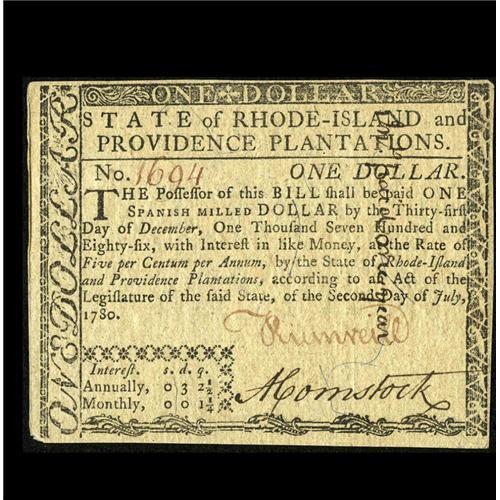 ONE DOLLAR
STATE of RHODE-ISLAND and
PROVIDENCE PLANTATIONS.
No. 1694 ONE DOLLAR.
THE Possessor of this BILL shall be paid ONE
SPANISH MILLED DOLLAR by the Thirty-first
Day of December, One Thousand Seven Hundred and
Eighty-six, with Interest in like Money, at the Rate of
Five per Centum per Annum, by the State of Rhode-Island
and Providence Plantations, according to an Act of the
Legislature of the said State, of the Second Day of July,
1780.
Interest. s. d. q.
Annually, 0 3 2½
Monthly, 0 0 1¼
A Comstock
ONE DOLLAR
Int. paid one year